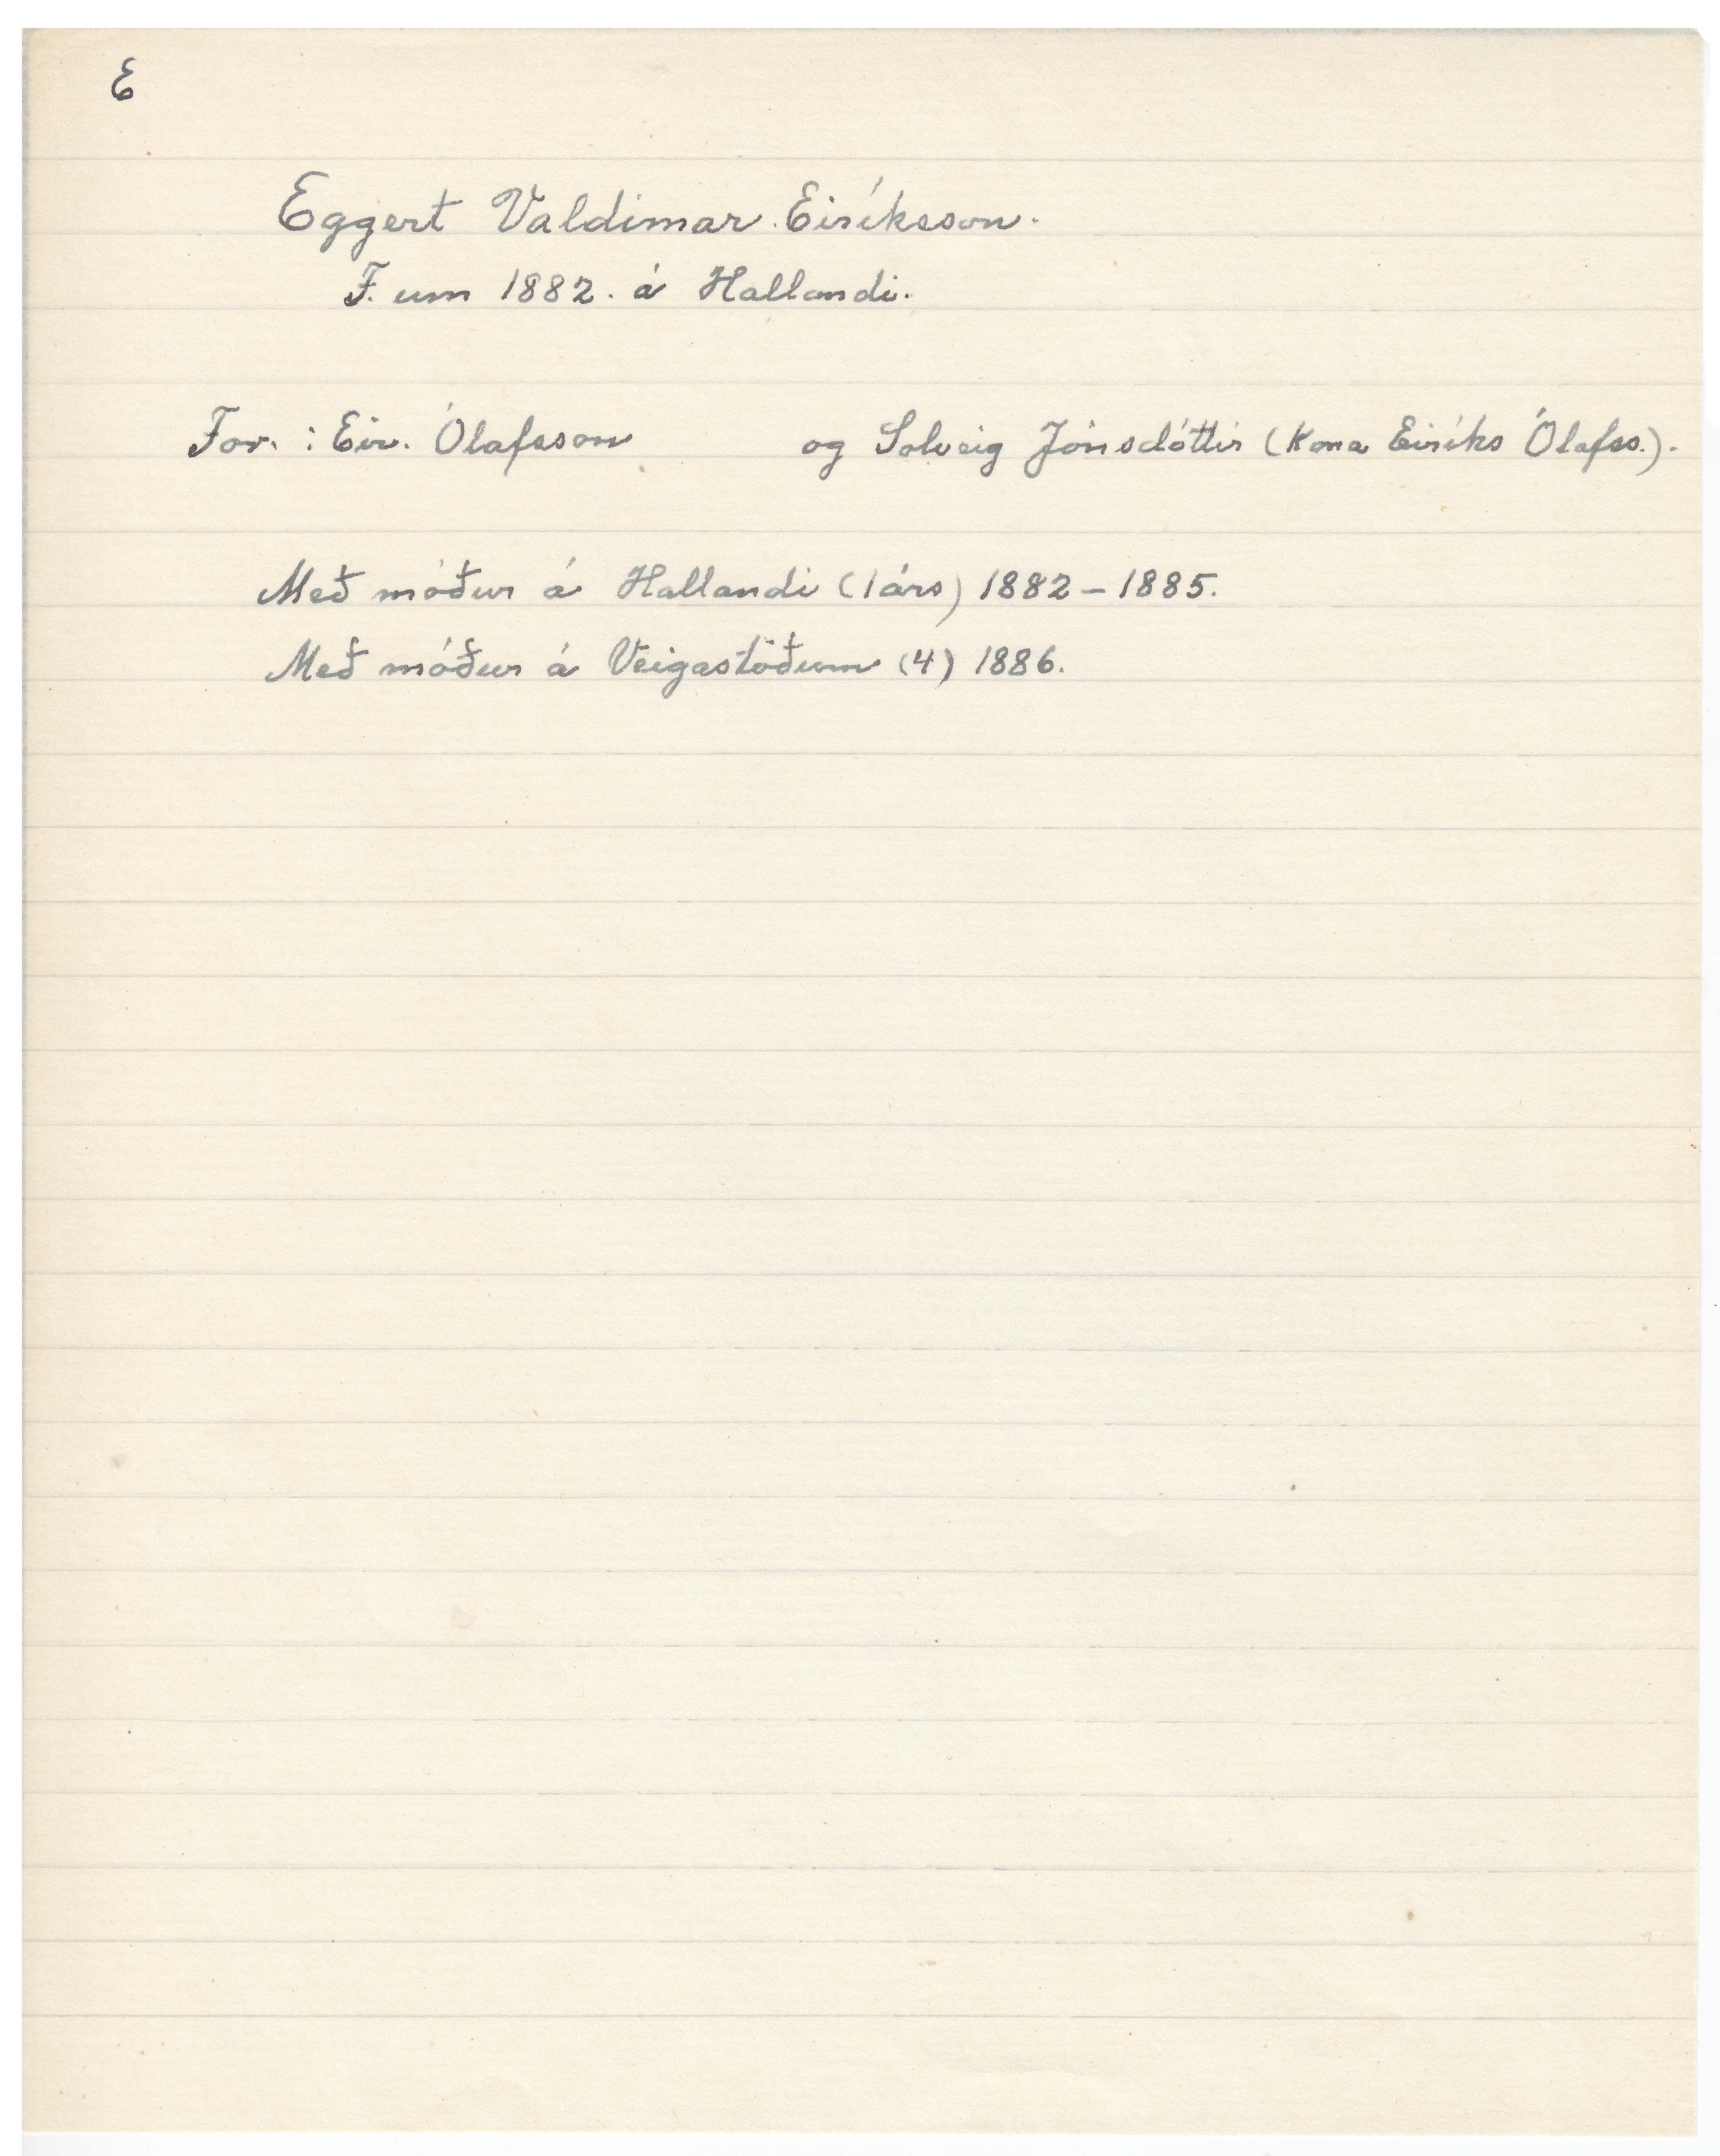 E
Eggert Valdimar Eiríksson.
F. um 1882. á Hallandi.
For. : Eir. Ólafsson og Solveig Jónsdóttir (Kona Eiríks Ólafss.).
Með móður á Hallandi (1árs) 1882 – 1885.
Með móður á Veigastöðum (4) 1886.